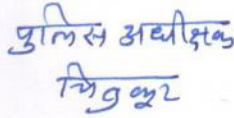 पुलिस अधीक्षक
चित्रकूट